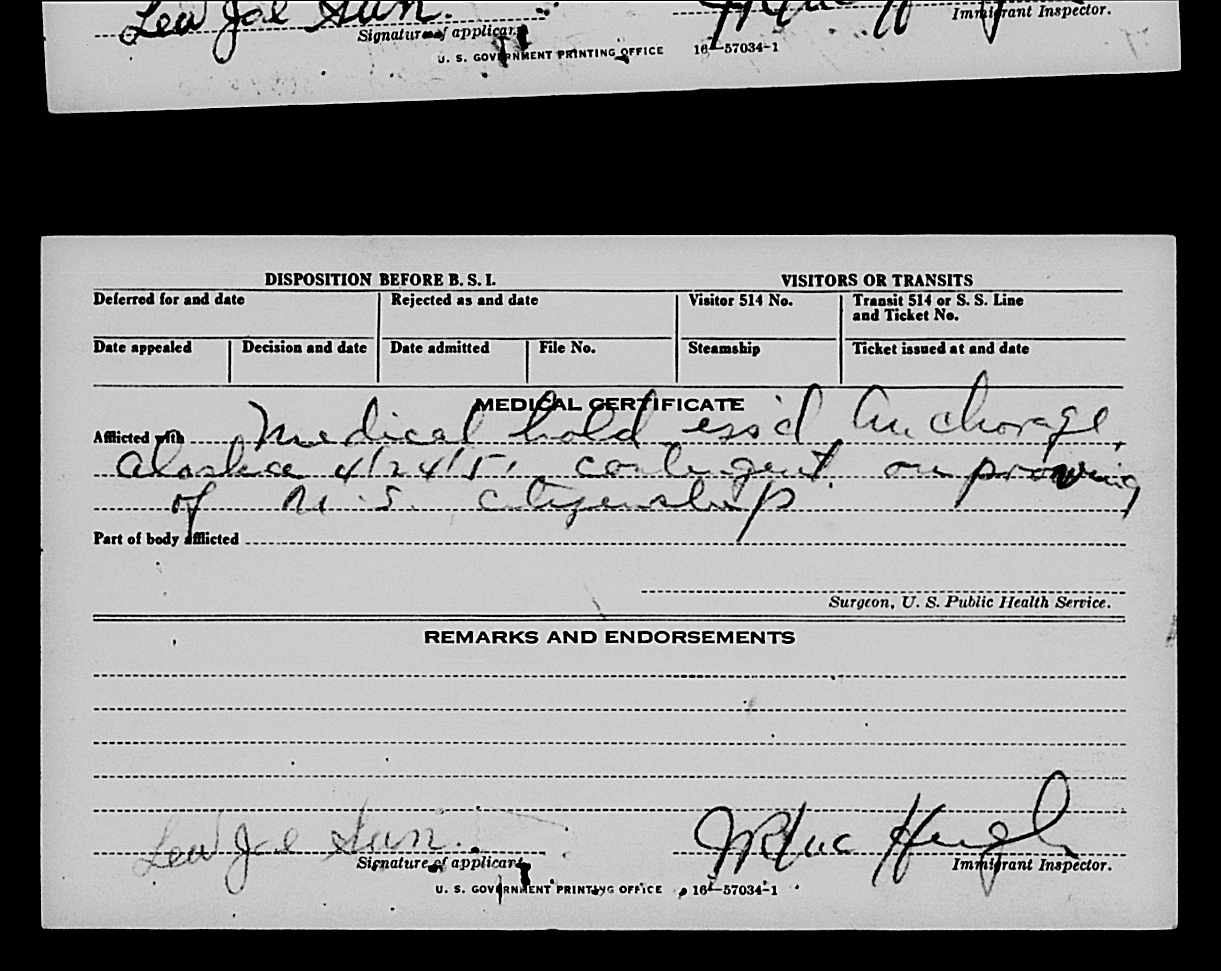 Lew Joe Sun.
Signature of applicant.
Immigrant Inspector.
U. S. GOVERNMENT PRINTING OFFICE 16—57034-1
DISPOSITION BEFORE B. S. I. VISITORS OR TRANSITS
Deferred for and date Rejected as and date Visitor 514 No. Transit 514 or S. S. Line
and Ticket No.
Date appealed Decision and date Date admitted File No. Steamship Ticket issued at and date
MEDICAL CERTIFICATE
Afflicted with Medical hold ess'd Anchorage,
Alaska 4/24/51 contingent on proving
of U.S. citizenship
Part of body afflicted
Surgeon, U. S. Public Health Service.
REMARKS AND ENDORSEMENTS
Lew Joe Sun.
Signature of applicant.
Immigrant Inspector.
U. S. GOVERNMENT PRINTING OFFICE 16—57034-1